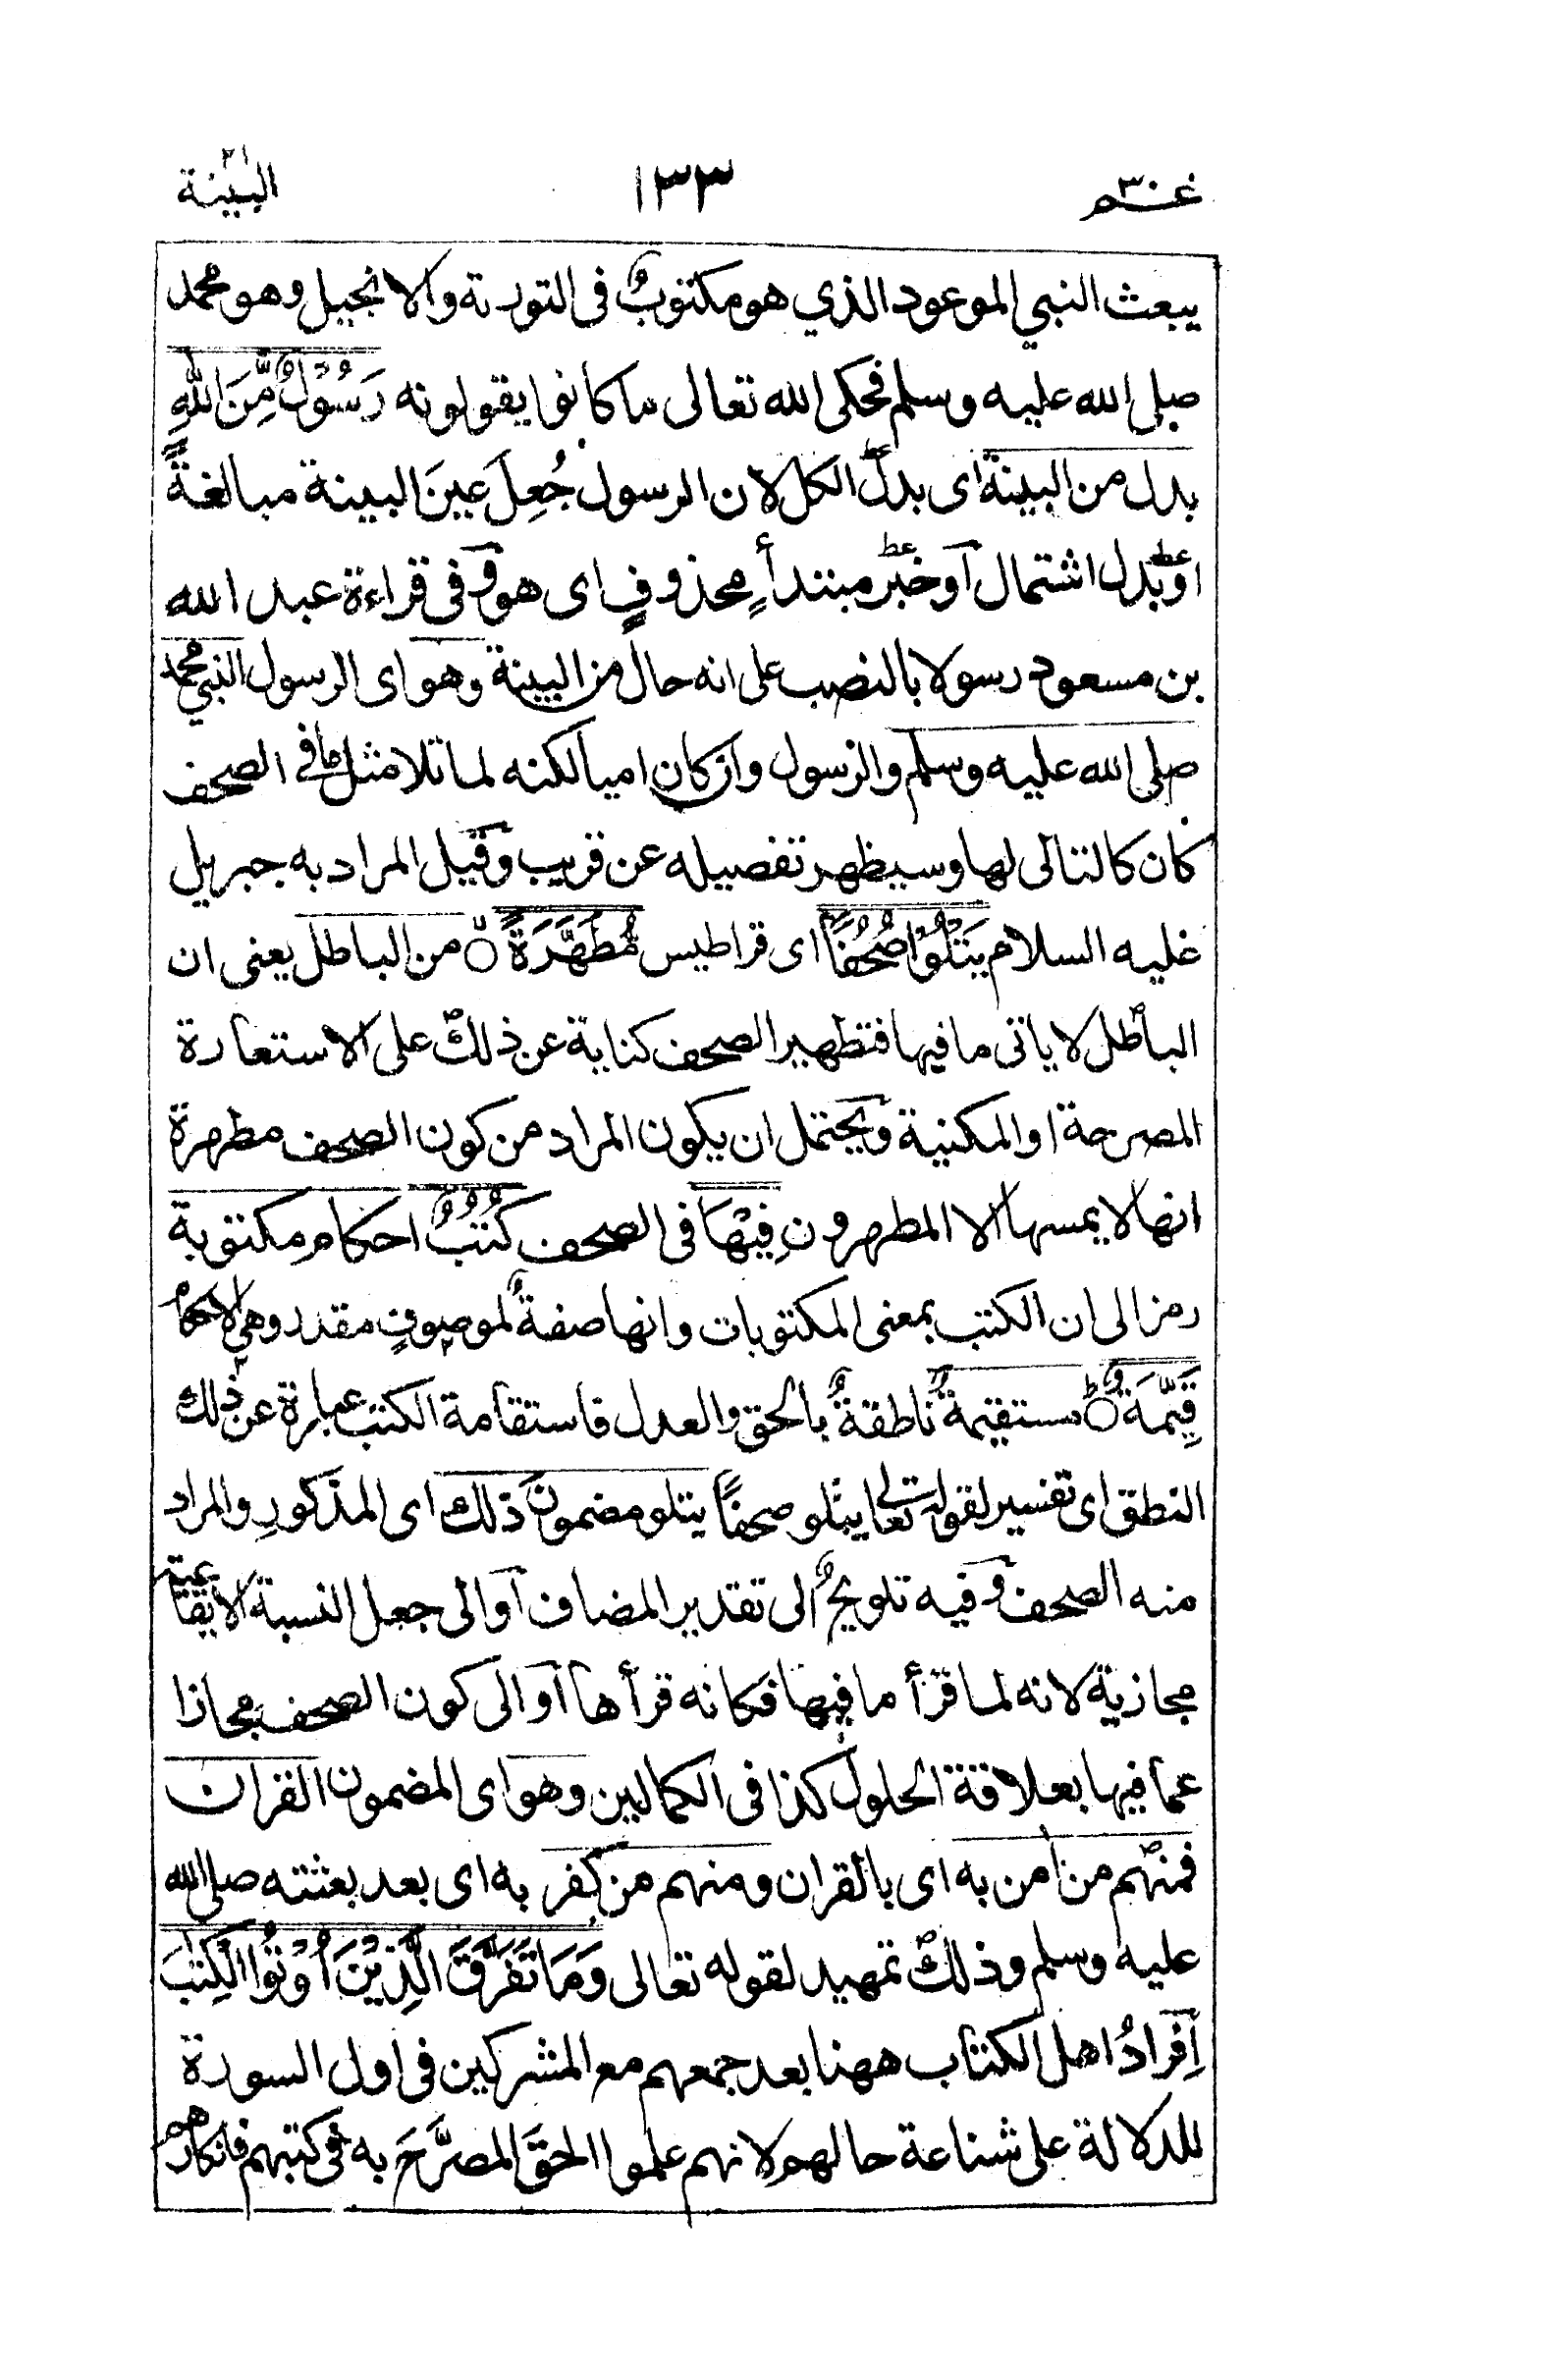 عم ٣٠ ١٣٣ البينة
يبعث النبي الموعود الذي هو مكتوبٌ فى التورىة والانجيل وهو محمد
صلى الله عليه وسلم فحكى الله تعالى ما كانوا يقولونه رَسُوْلٌ مِّنَ اللّٰهِ
بدل من البينة اى بدل الكل لان الرسول جُعِلَ عينَ البينة مبالغةً
او بدل اشتمال او خبر مبتدأٍ محذوفٍ اى هو وفى قراءة عبد الله
بن مسعود رسولا بالنصب على انه حال من البينة وهو اى الرسول النبي محمد
صلى الله عليه وسلم والرسول وان كان اميا لكنه لما تلا مثل ما في الصحف
كان كالتالى لها وسيظهر تفصيله عن قريب وقيل المراد به جبريل
عليه السلام يَتْلُوْا صُحُفًا اى قراطيس مُّطَهَّرَةً من الباطل يعنى ان
الباطل لا ياتى ما فيها فتطهير الصحف كناية عن ذلك على الاستعارة
المصرحة او المكنية ويحتمل ان يكون المراد من كون الصحف مطهرة
انها لا يمسها الا المطهرون فِيْهَا فى الصحف كُتُبٌ احكام مكتوبة
رمز الى ان الكتب بمعنى المكتوبات وانها صفةٌ لموصوفٍ مقدر وهي الاحكام
قَيِّمَةٌ مستقيمةٌ ناطقةٌ بالحق والعدل فاستقامة الكتب عبارة عن ذلك
النطق اى تفسير لقوله تعالى يتلو صحفًا يتلو مضمون ذلك اى المذكورِ والمراد
منه الصحف وفيه تلويحٌ الى تقدير المضاف او الى جعل النسبة الايقاعية
مجازية لانه لما قرأ ما فيها فكانه قرأها او الى كون الصحف مجازا
عما فيها بعلاقة الحلول كذا فى الكمالين وهو اى المضمون القران
فمنهم من امن به اى بالقران ومنهم من كفر به اى بعد بعثته صلى الله
عليه وسلم وذلك تمهيد لقوله تعالى وَمَا تَفَرَّقَ الَّذِيْنَ اُوْتُوا الْكِتٰبَ
اِفرادُ اهل الكتاب ههنا بعد جمعهم مع المشركين فى اول السورة
للدلالة على شناعة حالهم لانهم علموا الحقَ المصرَّحَ به فى كتبهم فانكارهم